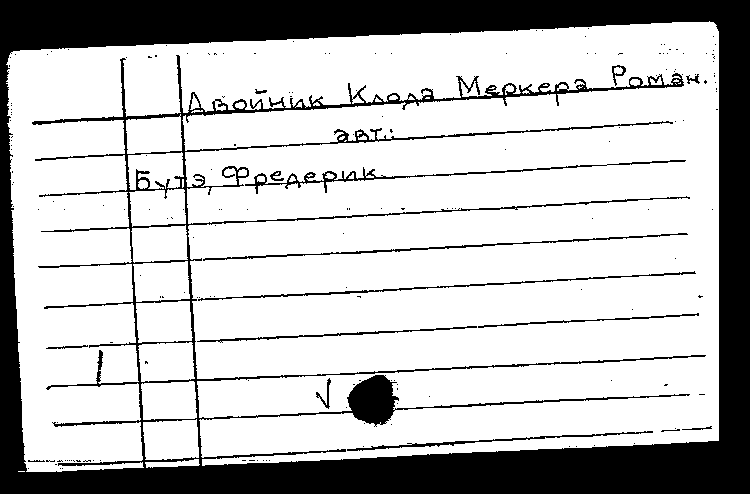 Двойник Клода Меркера Роман.
авт.:
Бутэ, Фредерик.